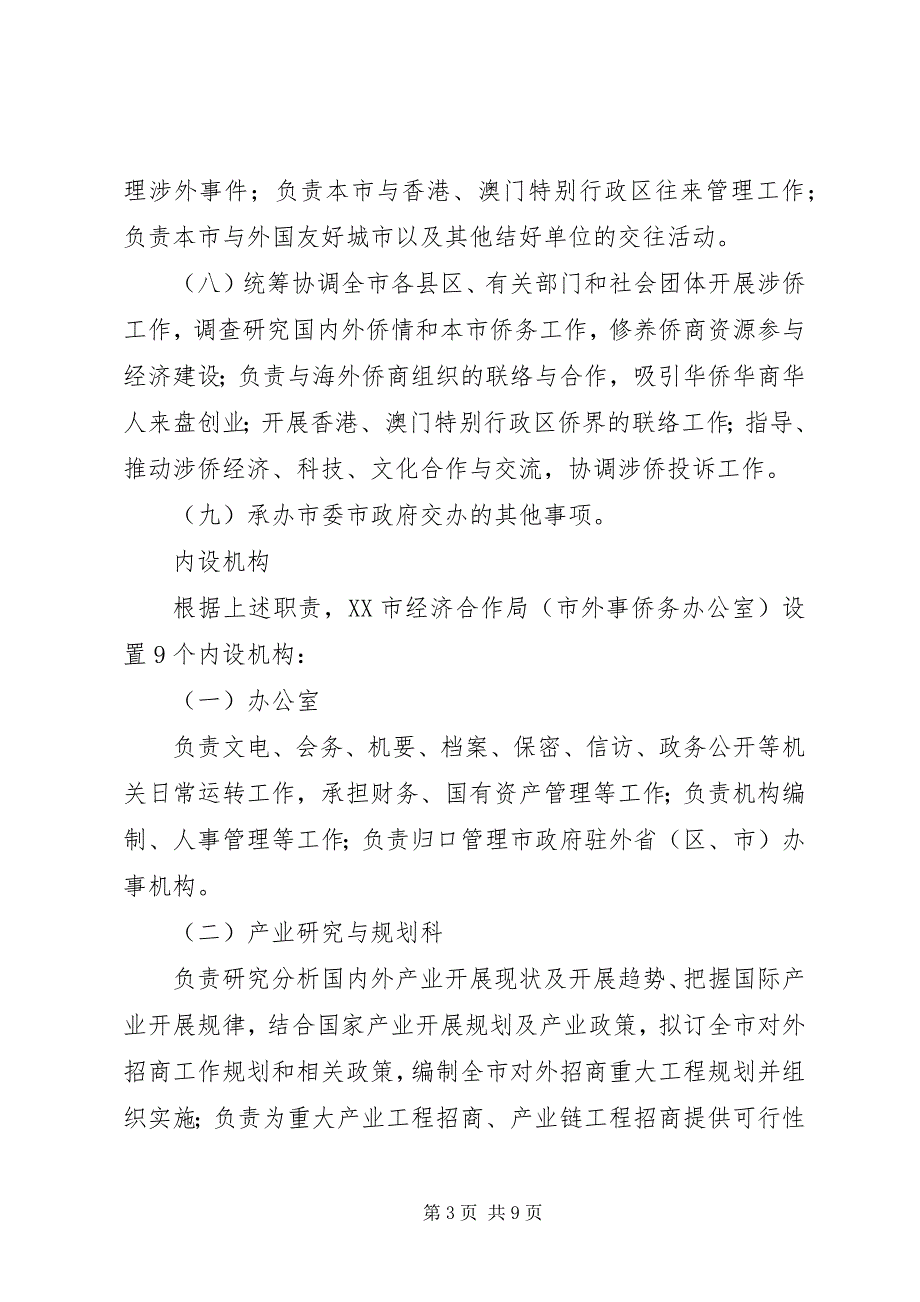 理涉外事件；负责本市与香港、澳门特别行政区往来管理工作；
负责本市与外国友好城市以及其他结好单位的交往活动。
（八）统筹协调全市各县区、有关部门和社会团体开展涉侨
工作，调查研究国内外侨情和本市侨务工作，修养侨商资源参与
经济建设；负责与海外侨商组织的联络与合作，吸引华侨华商华
人来盘创业；开展香港、澳门特别行政区侨界的联络工作；指导、
推动涉侨经济、科技、文化合作与交流，协调涉侨投诉工作。
（九）承办市委市政府交办的其他事项。
内设机构
根据上述职责，XX 市经济合作局（市外事侨务办公室）设
置 9 个内设机构：
（一）办公室
负责文电、会务、机要、档案、保密、信访、政务公开等机
关日常运转工作，承担财务、国有资产管理等工作；负责机构编
制、人事管理等工作；负责归口管理市政府驻外省（区、市）办
事机构。
（二）产业研究与规划科
负责研究分析国内外产业开展现状及开展趋势、把握国际产
业开展规律，结合国家产业开展规划及产业政策，拟订全市对外
招商工作规划和相关政策，编制全市对外招商重大工程规划并组
织实施；负责为重大产业工程招商、产业链工程招商提供可行性
第 3 页 共 9 页